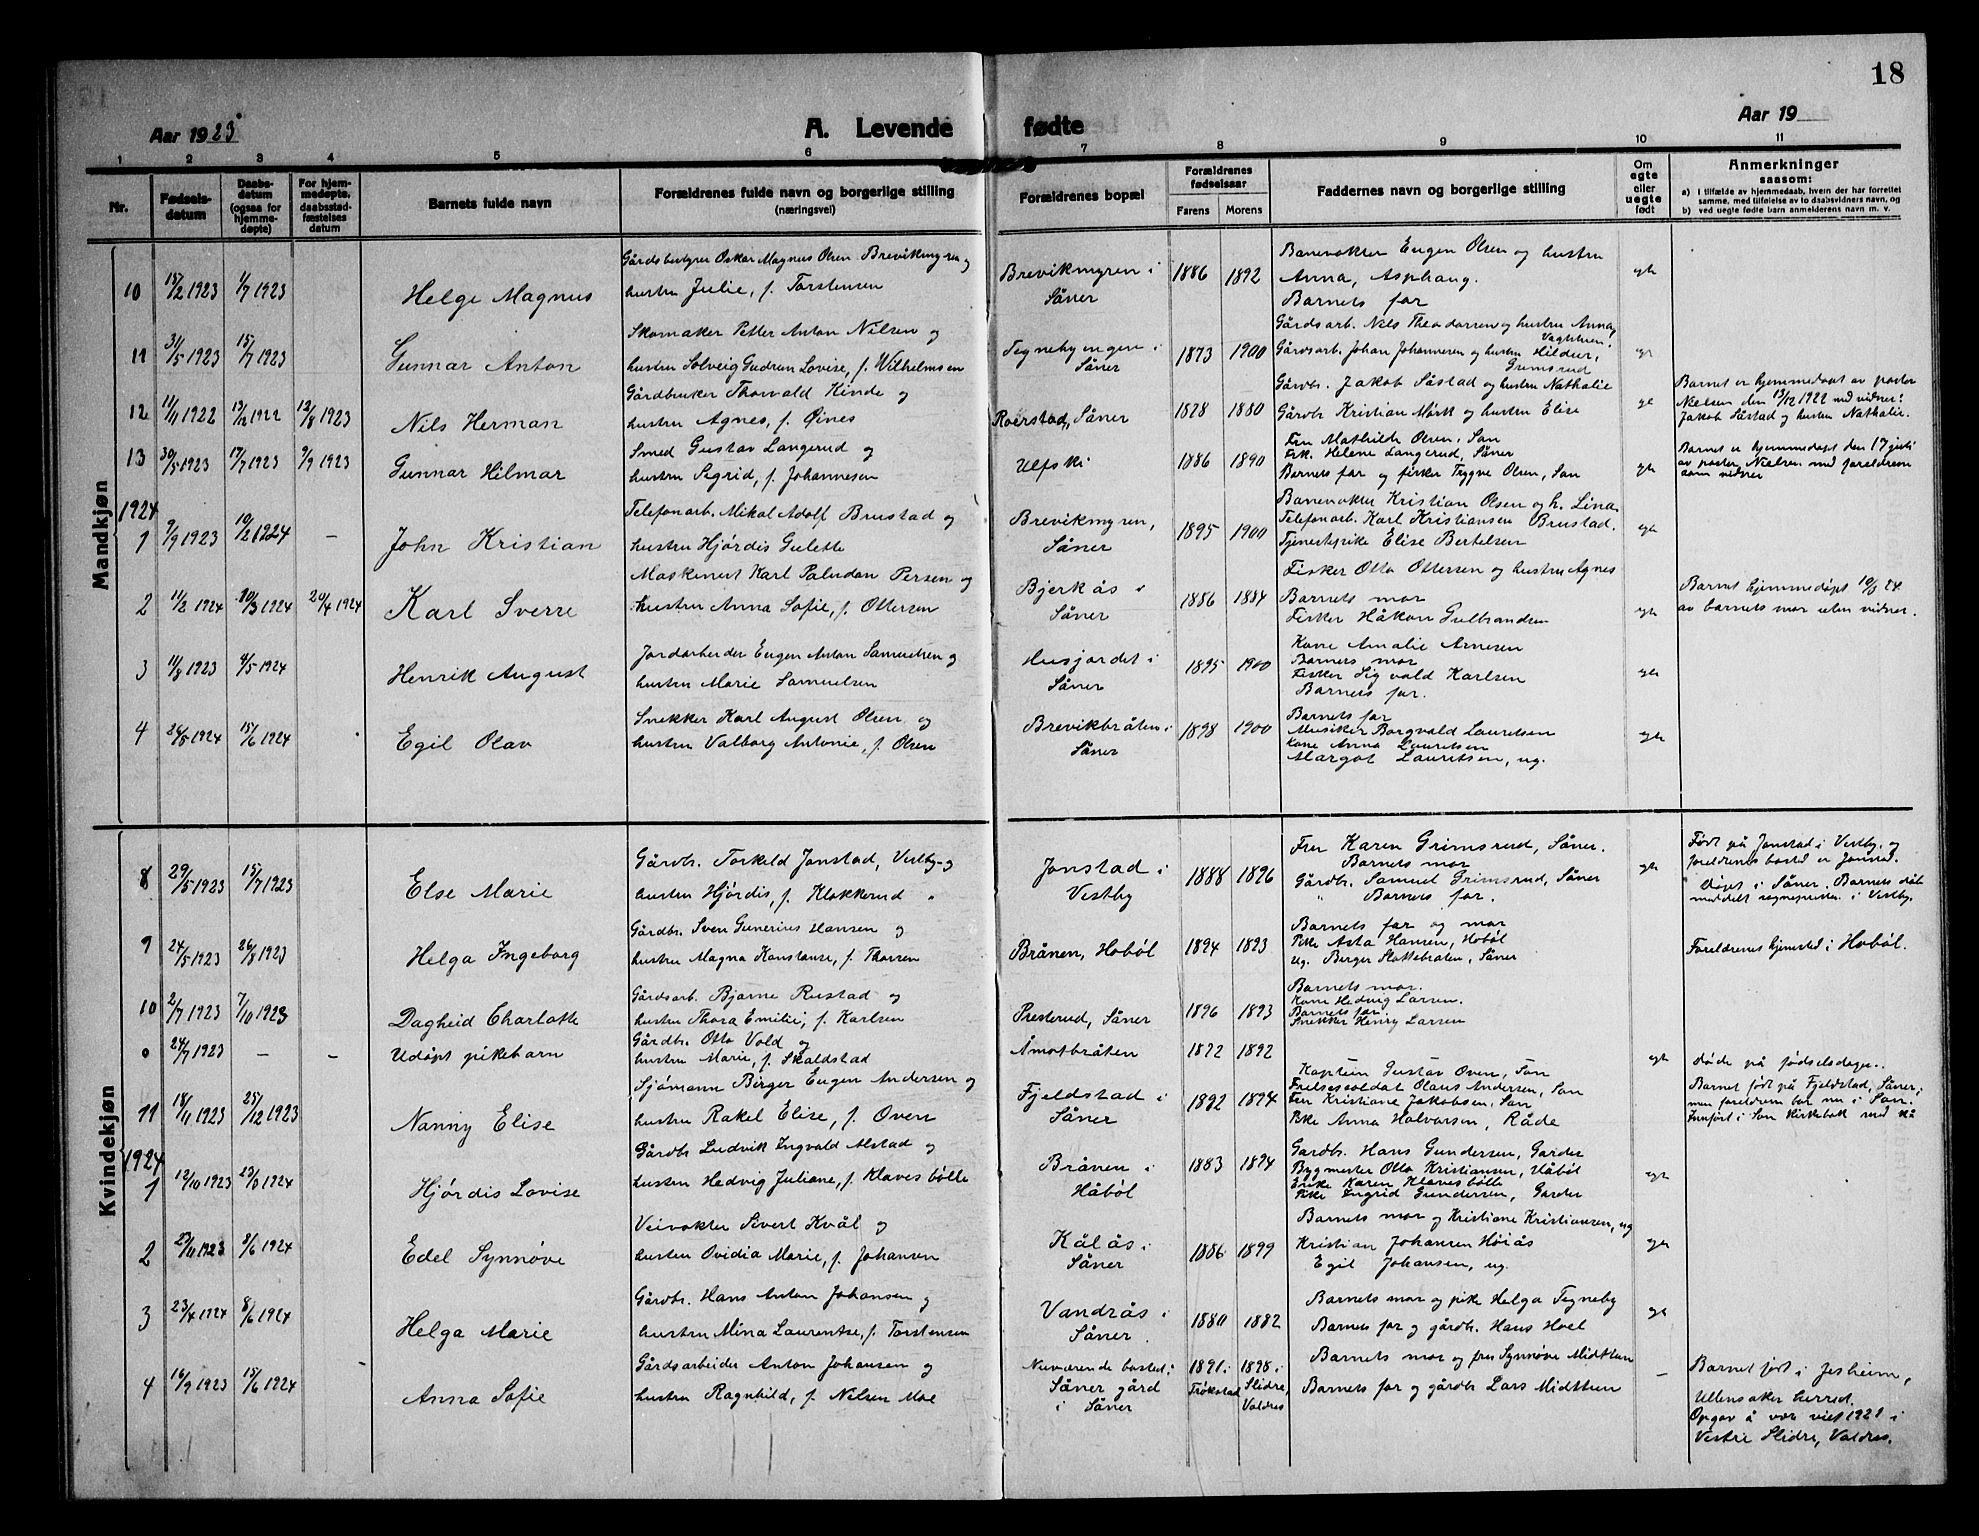 18
Aar 1923
A. Levende fødte
Aar 19
1 2 3 4 5 6 7 8 9 10 11
Nr.
Fødsels-
datum
Daabs-
datum
(ogsaa for
hjemme-
døpte)
For hjem-
medøpte,
daabsstad-
fæstelses
datum
Barnets fulde navn
Forældrenes fulde navn og borgerlige stilling
(næringsvei)
Forældrenes bopæl
Forældrenes
fødselsaar
Farens Morens
Faddernes navn og borgerlige stilling
Om
egte
eller
uegte
født
Anmerkninger
saasom:
a) I tilfælde av hjemmedaab, hvem der har forrettet
samme, med tilføielse av to daabsvidners navn, og
b) ved uegte fødte barn anmelderens navn m. v.
Mandkjøn
10 15/2 1923 1/7 1923 Helge Magnus
Gårdsbestyrer Oskar Magnus Olsen Brevikmyren og
hustru Julie, f. Torstensen
Brevikmyren i
Såner
1886 1892
Banevokter Eugen Olsen og hustru
Anna, Asphaug.
Barnets far
egte
11 31/5 1923 15/7 1923 Gunnar Anton
Skomaker Petter Anton Nilsen og
hustru Solveig Gudrun Lovise, f. Wilhelmsen
Tegnebyengen i
Såner
1873 1900
Gårdsarb. Nils Theodorsen og hustru Anna,
Gårdsarb. Johan Johannesen og hustru Hildur,
Grimsrud
12 11/11 1922 13/12 1922 12/8 1923 Nils Herman
Gårdbruker Thorvald Hinde og
hustru Agnes, f. Øines
Roerstad, Såner
1878 1880
Gårdbr. Jakob Såstad og hustru Nathalie
Gårdbr. Kristian Mørk og hustru Elise
Barnet er hjemmedøpt av pastor
Nielsen den 13/12 1922 med vidner:
Jakob Såstad og hustru Nathalie.
13 30/5 1923 17/7 1923 9/9 1923 Gunnar Hilmar
Smed Gustav Langerud og
hustru Sigrid, f. Johannesen
Ulfski
1886 1890
Fru Mathilde Olsen, Son
Frk. Helene Langerud, Såner
Barnets far og fisker Trygve Olsen, Son
egte
Barnet er hjemmedøpt den 17 juli
av pastor Nielsen med foreldrene
som vidner
1924
1 9/9 1923 10/2 1924 – John Kristian
Telefonarb. Mikal Adolf Brustad og
hustru Hjørdis Gulette
Brevikmyren,
Såner
1895 1900
Banevokter Kristian Olsen og h. Lina.
Telefonarb. Karl Kristiansen Brustad.
Tjenestepike Elise Bertelsen
egte
2 11/2 1924 10/3 1924 20/4 1924 Karl Sverre
Maskinist Karl Paludan Persen og
hustru Anna Sofie, f. Ottersen
Bjerkås i
Såner
1886 1884
Fisker Otto Ottersen og hustru Agnes
Barnets mor
Fisker Håkon Gulbrandsen
egte
Barnet hjemmedøpt 10/3 24
av barnets mor uten vidner.
3 11/8 1923 4/5 1924 Henrik August
Jordarbeider Eugen Anton Samuelsen og
hustru Marie Samuelsen
Husjordet i
Såner
1895 1900
Kone Amalie Arnesen
Barnets mor
Fisker Sigvald Karlsen
Barnets far.
egte
4 26/3 1924 15/6 1924 Egil Olav
Snekker Karl August Olsen og
hustru Valborg Antonie, f. Olsen
Brevikbråten i
Såner
1898 1900
Barnets far
Musiker Borgvald Lauritsen
Kone Anna Lauritsen
Margot Lauritsen, ug.
egte
Kvindekjøn
8 29/5 1923 15/7 1923 Else Marie
Gårdbr. Torkild Jonstad, Vestby og
hustru Hjørdis, f. Klokkerud "
Jonstad i
Vestby
1888 1896
Fru Karen Grimsrud, Såner.
Barnets mor
Gårdbr. Samuel Grimsrud, Såner
" Barnets far.
egte
Født på Jonstad i Vestby og
foreldrenes bosted er Jonstad.
Døpt i Såner. Barnets dåb
meddelt sognepresten i Vestby.
9 24/5 1923 26/8 1923 Helga Ingeborg
Gårdbr. Sven Gunerius Hansen og
hustru Magna Konstanse, f. Thorsen
Brånen, Hobøl
1894 1893
Barnets far og mor
Pike Asta Hansen, Hobøl
Ug. Berger Slottebråten, Såner
Foreldrenes hjemsted i Hobøl.
10 2/7 1923 7/10 1923 Dagheid Charlotte
Gårdsarb. Bjarne Rustad og
hustru Thora Emilie, f. Karlsen
Presterud, Såner
1896 1893
Barnets mor.
Kone Hedvig Larsen.
Barnets far.
Snekker Henry Larsen
0 24/7 1923 – – Udøpt pikebarn
Gårdbr. Otto Vold og
hustru Marie, f. Skaldstad
Åmotbråten
1872 1892
egte
Døde på fødselsdagen.
11 18/11 1923 25/12 1923 Nanny Elise
Sjømann Birger Eugen Andersen og
hustru Rakel Elise, f. Oven
Fjeldstad i
Såner
1892 1894
Kaptein Gustav Oven, Son
Frelsessoldat Olaus Andersen, Son
Fru Kristiane Jakobsen, Son
Pike Anna Halvorsen, Råde
Barnet født på Fjeldstad, Såner,
men foreldrene bor nu i Son.
Innført i Son kirkebok med
1924
1 12/10 1923 1924 Hjørdis Lovise
Gårdbr. Ludvik Ingvald Alstad og
hustru Hedvig Juliane, f. Klavesbølle
Brånen i
Håbøl
1883 1894
Gardbr. Hans Gundersen, Garder
Bygmester Otto Kristiansen, Håbøl
Enke Karen Klavesbølle
Pike Ingrid Gundersen, Garder
egte
2 23/11 1923 8/6 1924 Edel Synnøve
Veivokter Sivert Kvål og
hustru Ovidia Marie, f. Johansen
Kålås i
Såner
1886 1899
Barnets mor og Kristiane Kristiansen, ug
Kristian Johansen Høiås
Egil Johansen, ug.
egte
3 23/4 1924 8/6 1924 Helga Marie
Gårdbr. Hans Anton Johansen og
hustru Mina Laurentse, f. Torstensen
Vandrås i
Såner
1880 1882
Barnets mor og pike Helga Tegneby
Barnets far og gårdbr. Hans Hoel
4 16/9 1923 15/6 1924 Anna Sofie
Gårdsarbeider Anton Johansen og
hustru Ragnhild, f. Nilsen Moe
Nuværende bosted:
Såner gård
i Såner
1891 i
Trøkstad
1898 i
Slidre,
Valdres
Barnets mor og fru Synnøve Midttun
Barnets far og gårdbr. Lars Midttun
–
Barnet født i Jesheim,
Ullensaker herred.
Opgav å vær viet 1921 i
Vestre Slidre, Valdres.